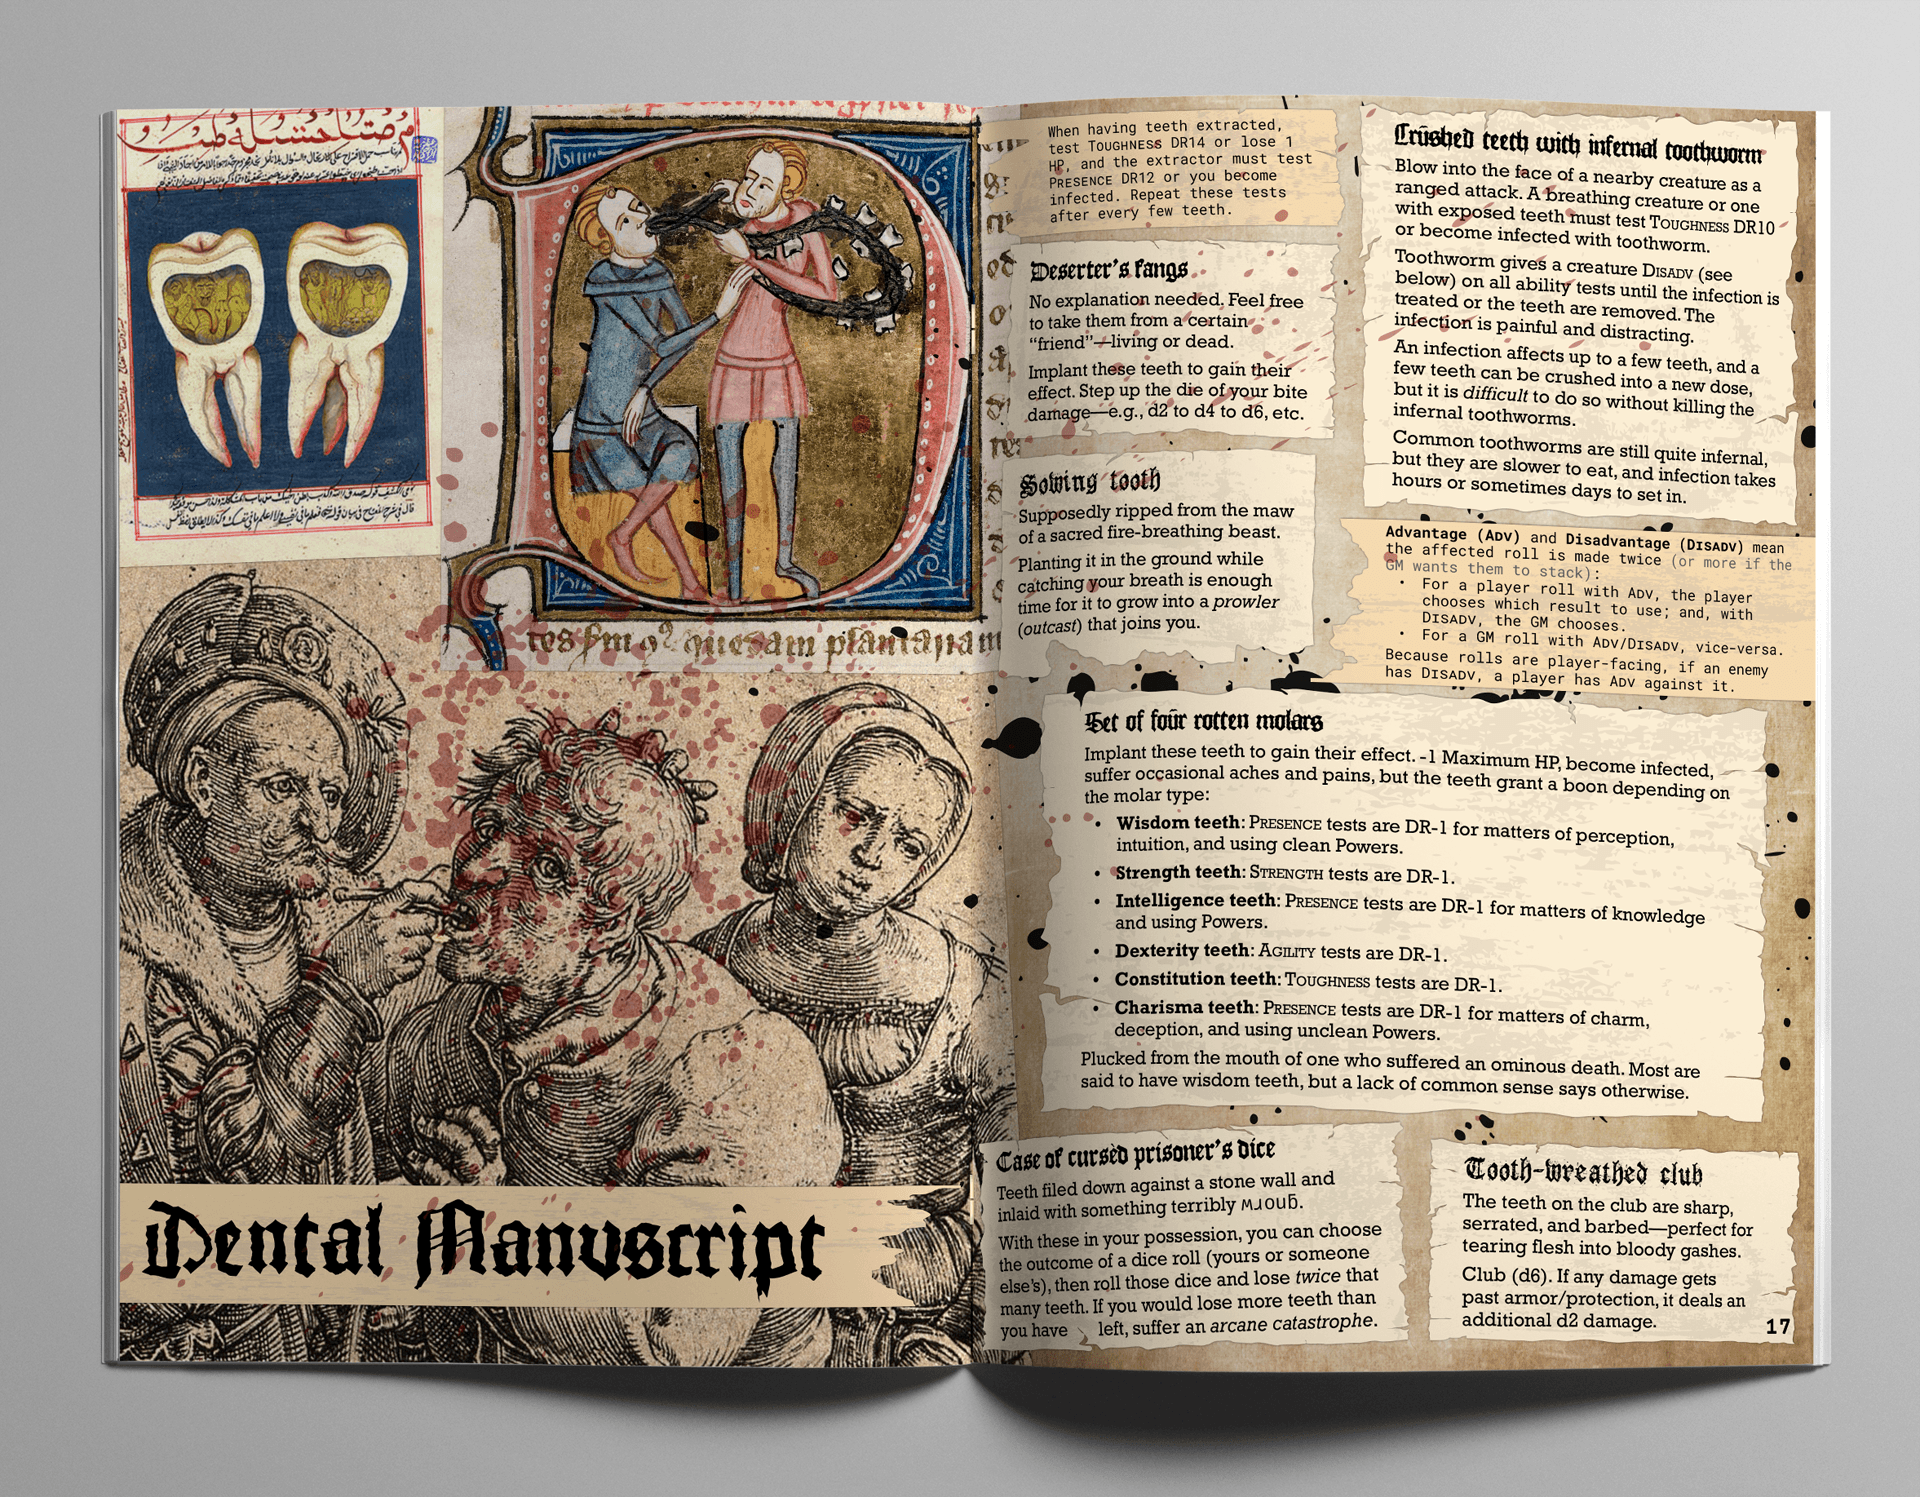 tes
quesam plantanam
Dental Manuscript
When having teeth extracted,
test TOUGHNESS DR14 or lose 1
HP, and the extractor must test
PRESENCE DR12 or you become
infected. Repeat these tests
after every few teeth.
Deserter's fangs
No explanation needed. Feel free
to take them from a certain
“friend”—living or dead.
Implant these teeth to gain their
effect. Step up the die of your bite
damage—e.g., d2 to d4 to d6, etc.
Sowing tooth
Supposedly ripped from the maw
of a sacred fire-breathing beast.
Planting it in the ground while
catching your breath is enough
time for it to grow into a prowler
(outcast) that joins you.
Crushed teeth with infernal toothworm
Blow into the face of a nearby creature as a
ranged attack. A breathing creature or one
with exposed teeth must test TOUGHNESS DR10
or become infected with toothworm.
Toothworm gives a creature DISADV (see
below) on all ability tests until the infection is
treated or the teeth are removed. The
infection is painful and distracting.
An infection affects up to a few teeth, and a
few teeth can be crushed into a new dose,
but it is difficult to do so without killing the
infernal toothworms.
Common toothworms are still quite infernal,
but they are slower to eat, and infection takes
hours or sometimes days to set in.
Advantage (ADV) and Disadvantage (DISADV) mean
the affected roll is made twice (or more if the
GM wants them to stack):
• For a player roll with ADV, the player
chooses which result to use; and, with
DISADV, the GM chooses.
• For a GM roll with ADV/DISADV, vice-versa.
Because rolls are player-facing, if an enemy
has DISADV, a player has ADV against it.
Set of four rotten molars
Implant these teeth to gain their effect. -1 Maximum HP, become infected,
suffer occasional aches and pains, but the teeth grant a boon depending on
the molar type:
• Wisdom teeth: PRESENCE tests are DR-1 for matters of perception,
intuition, and using clean Powers.
• Strength teeth: STRENGTH tests are DR-1.
• Intelligence teeth: PRESENCE tests are DR-1 for matters of knowledge
and using Powers.
• Dexterity teeth: AGILITY tests are DR-1.
• Constitution teeth: TOUGHNESS tests are DR-1.
• Charisma teeth: PRESENCE tests are DR-1 for matters of charm,
deception, and using unclean Powers.
Plucked from the mouth of one who suffered an ominous death. Most are
said to have wisdom teeth, but a lack of common sense says otherwise.
Case of cursed prisoner's dice
Teeth filed down against a stone wall and
inlaid with something terribly
With these in your possession, you can choose
the outcome of a dice roll (yours or someone
else's), then roll those dice and lose twice that
many teeth. If you would lose more teeth than
you have left, suffer an arcane catastrophe.
Tooth-wreathed club
The teeth on the club are sharp,
serrated, and barbed—perfect for
tearing flesh into bloody gashes.
Club (d6). If any damage gets
past armor/protection, it deals an
additional d2 damage.
17